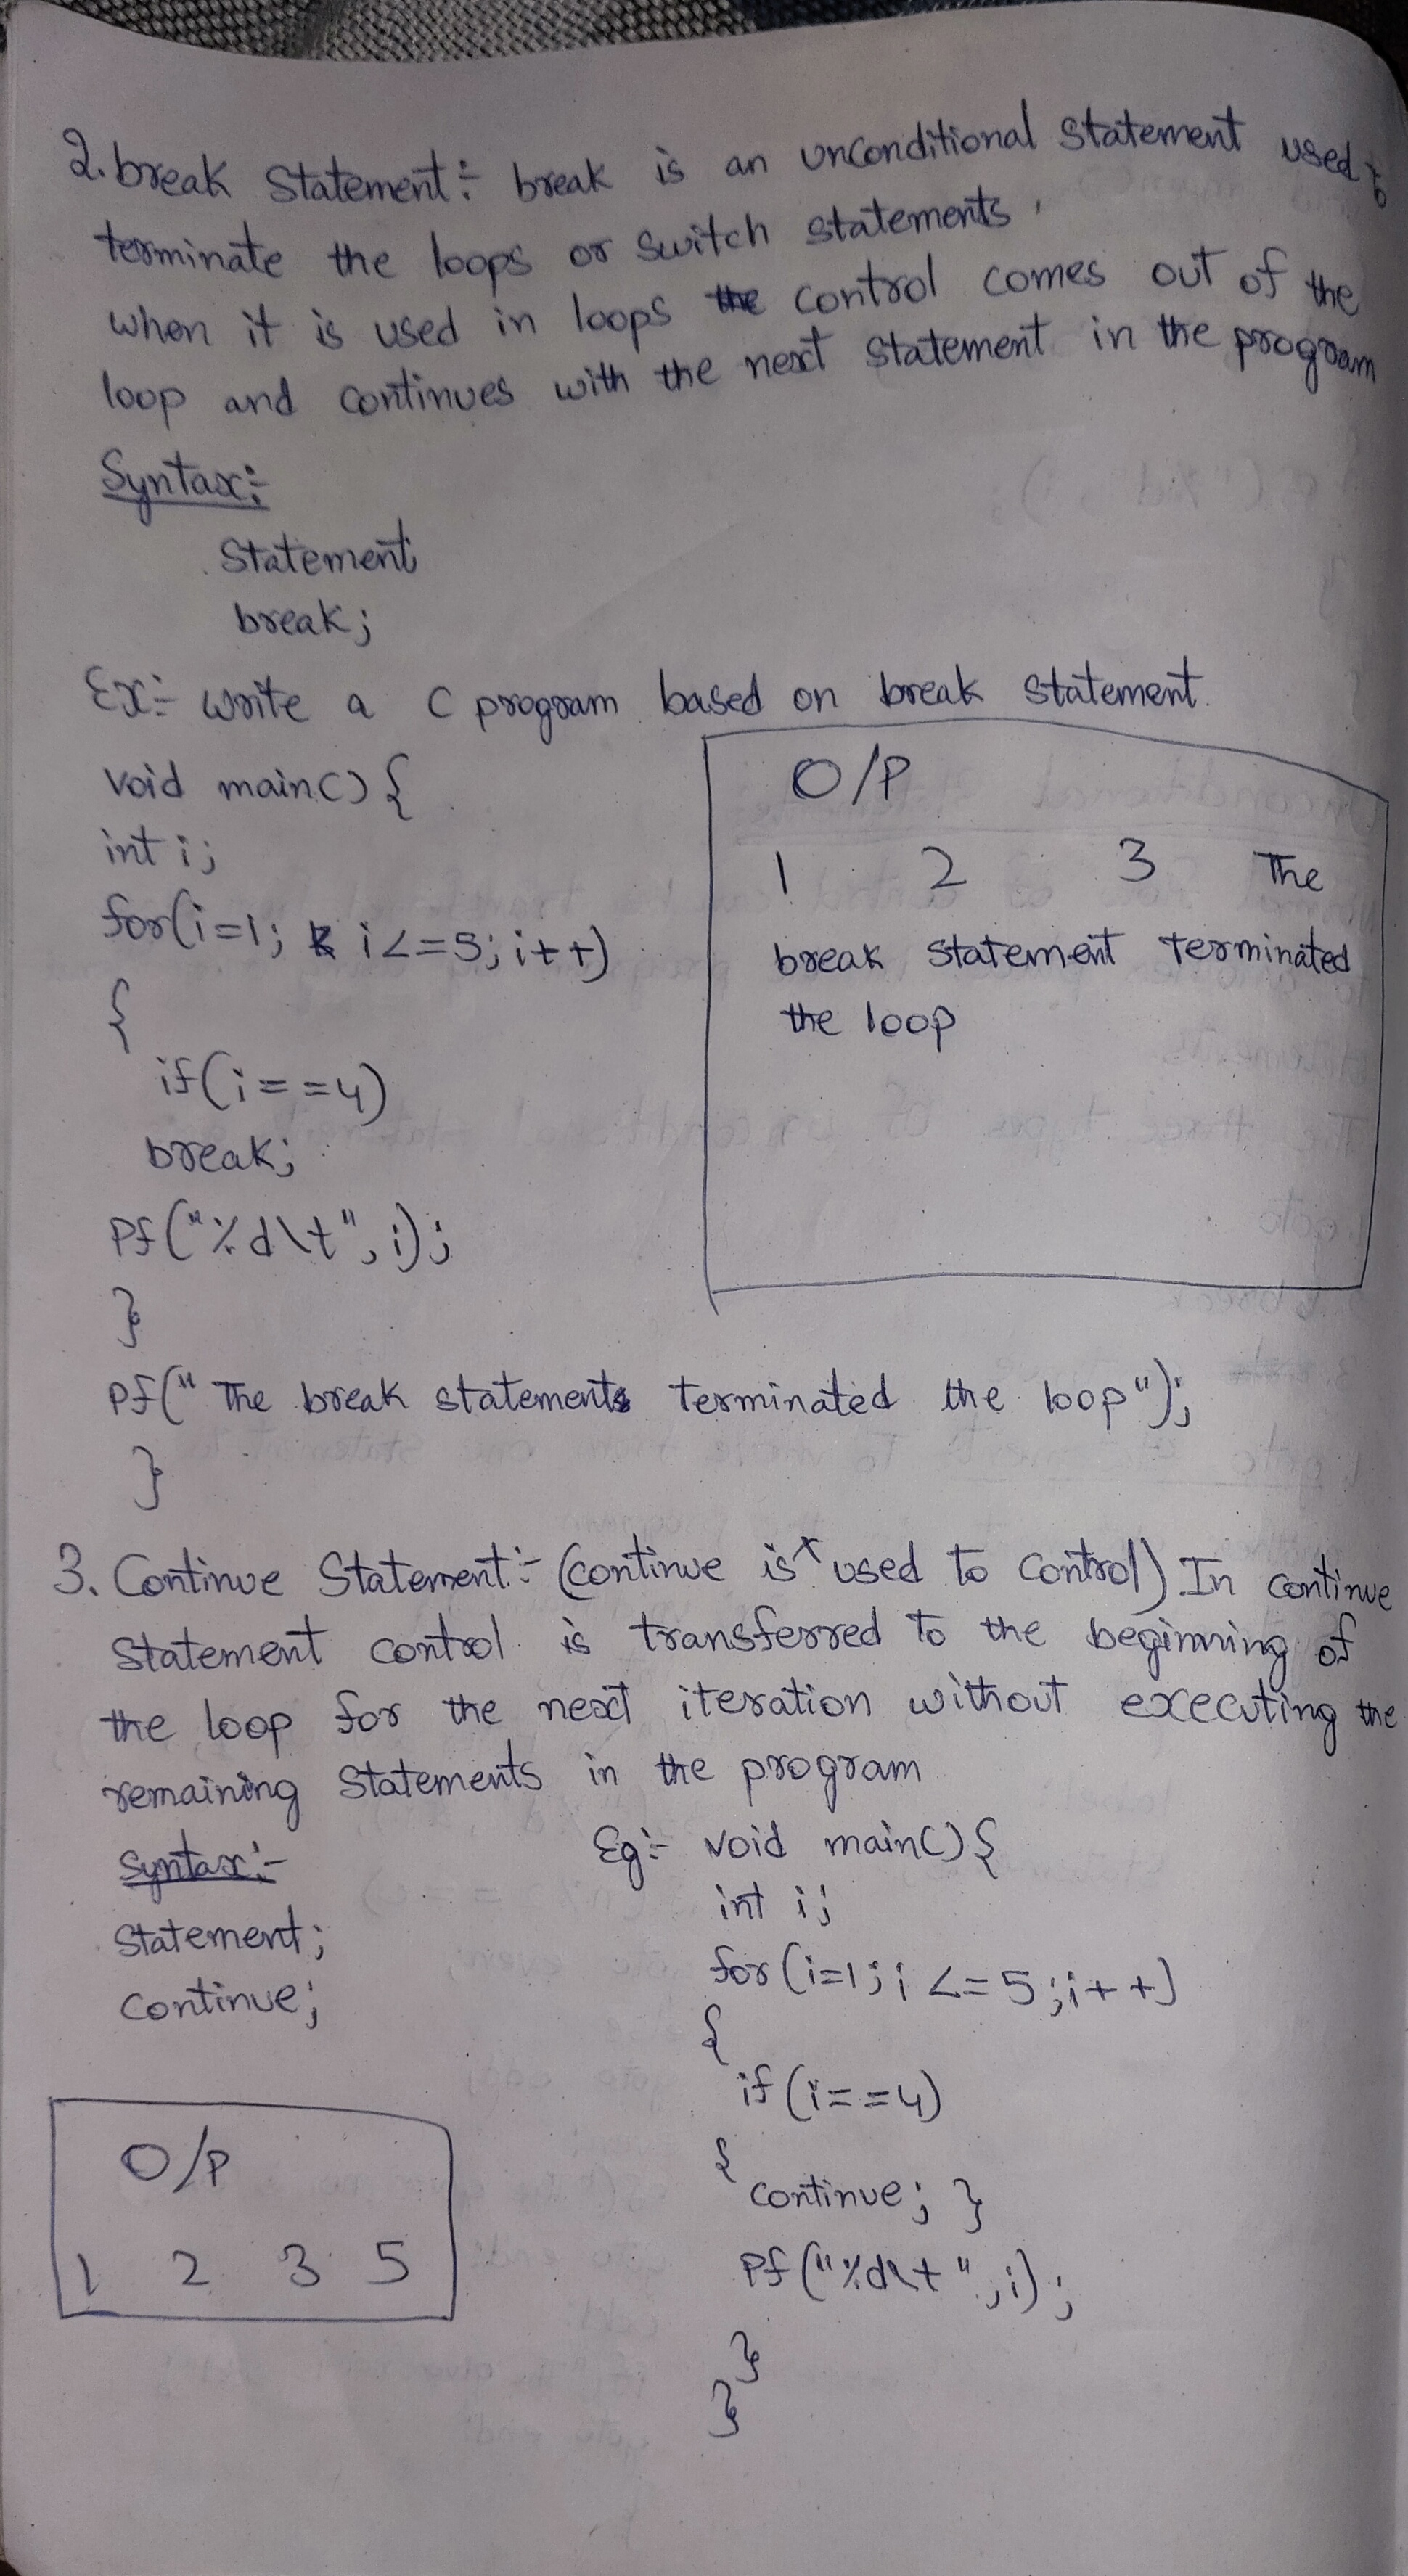 2. break Statement:- break is an unconditional Statement used to
terminate the loops or switch statements.
when it is used in loops the control comes out of the
loop and continues with the next statement in the program
Syntax:-
Statement
break;
Ex:- write a c program based on break statement.
void main() {
int i;
for(i=1; i<=5; i++)
{
if(i==4)
break;
Pf("%d\t", i);
}
Pf("The break statement terminated the loop");
}
O/P
1 2 3 The
break statement terminated
the loop
3. Continue Statement:- (continue is used to control) In continue
Statement control is transferred to the beginning of
the loop for the next iteration without executing the
remaining statements in the program
Syntax:-
Statement;
Continue;
O/P
1 2 3 5
Eg:- void main() {
int i;
for(i=1; i<=5; i++)
{
if(i==4)
{
continue; }
Pf("%d\t", i);
}
}